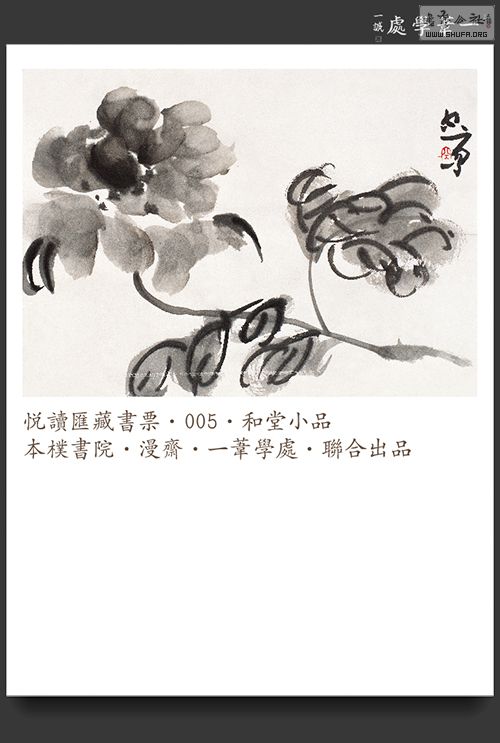 一葦學處
一誠
書法公社
WWW.SHUFA.ORG
悦讀匯藏書票·005·和堂小品
本樸書院·漫齋·一葦學處·聯合出品